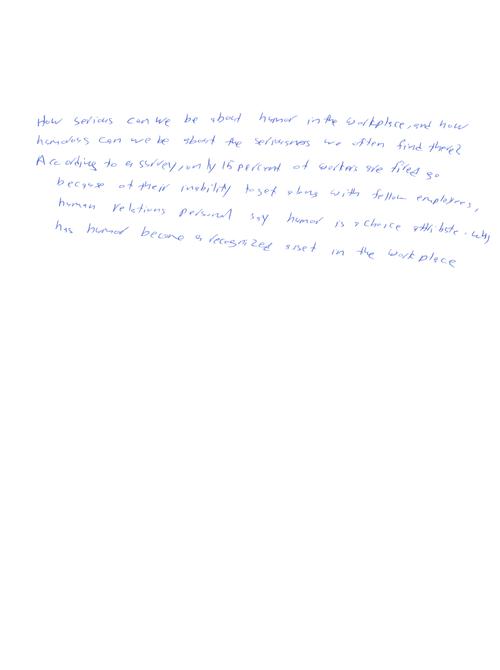 How serious can we be about humor in the workplace, and how
humorous can we be about the seriousness we often find there?
According to a survey, only 15 percent of workers are fired
because of their inability to get along with fellow employees,
human relations personal say humor is a choice attribute. Why
has humor become a recognized asset in the workplace